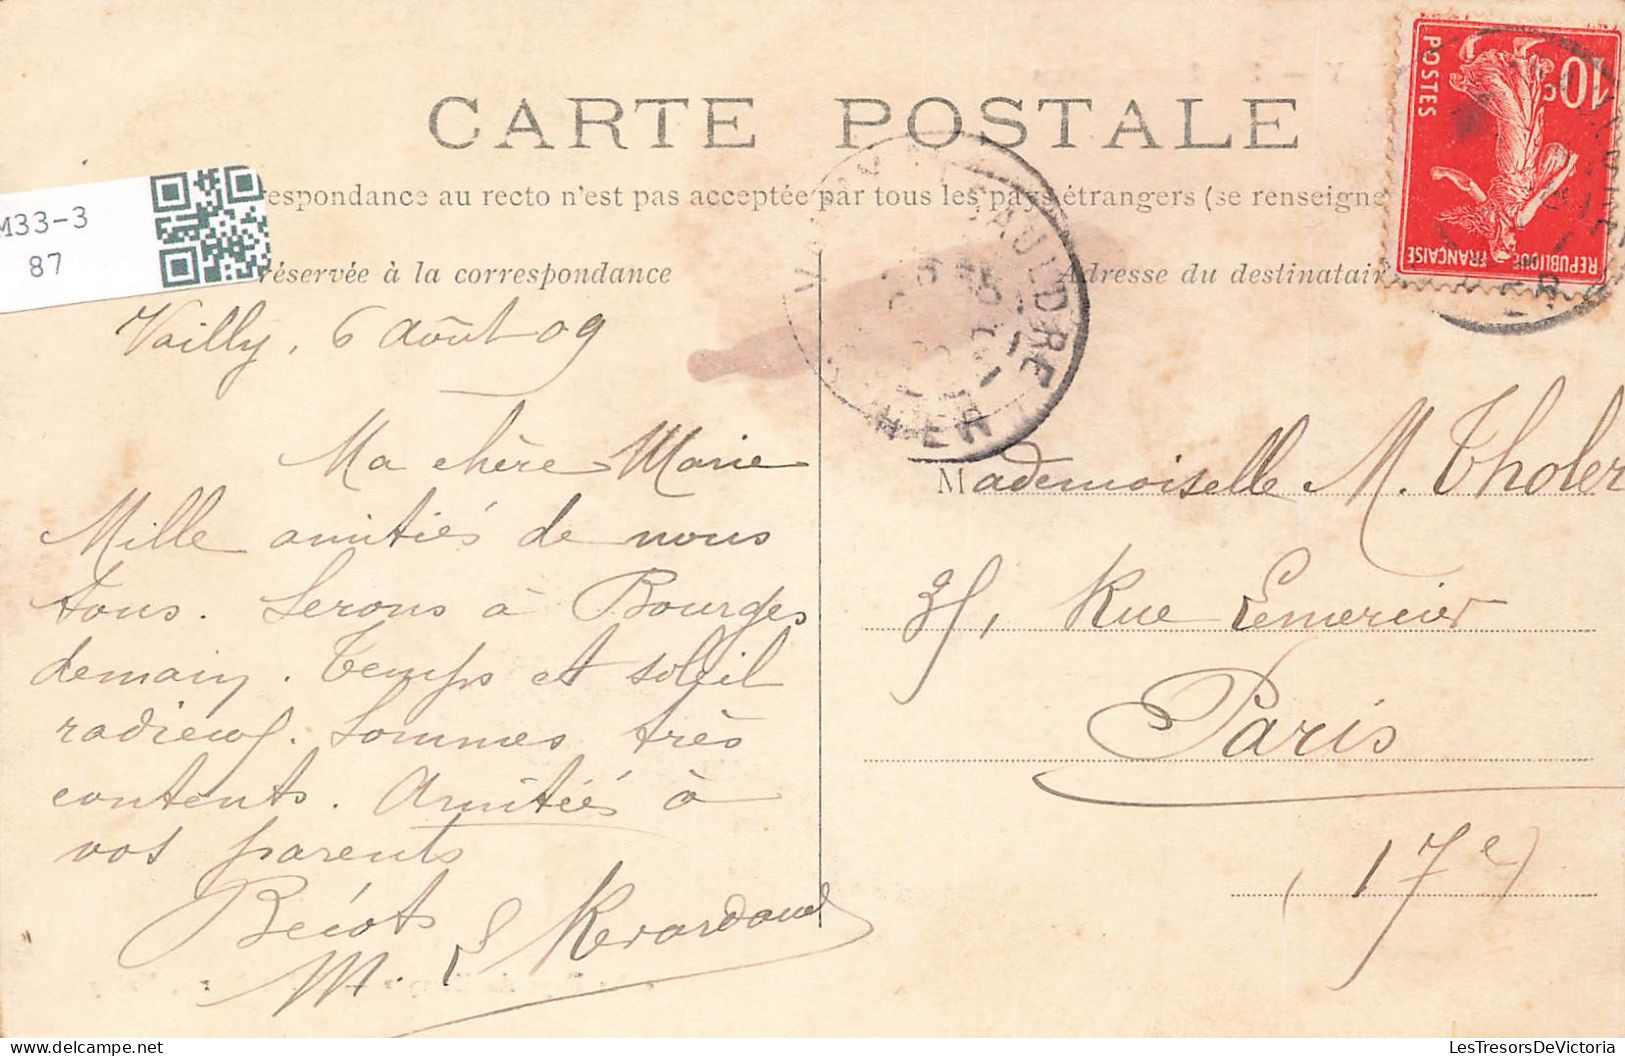 CARTE POSTALE
respondance au recto n'est pas acceptée par tous les pays étrangers (se renseigne
M33-3
87
réservée à la correspondance
Adresse du destinatair
10c
POSTES
REPUBLIQUE FRANÇAISE
SAULDRE
Vailly, 6 Août 09
Ma chère Marie
Mille amitiés de nous
tous. Serons à Bourges
demain. Temps et soleil
radieux. Sommes très
contents. Amitiés à
vos parents
Bécot
M.
Mademoiselle M. Tholer
35, Rue Lemercier
Paris
(17e)
LesTresorsDeVictoria
delcampe.net